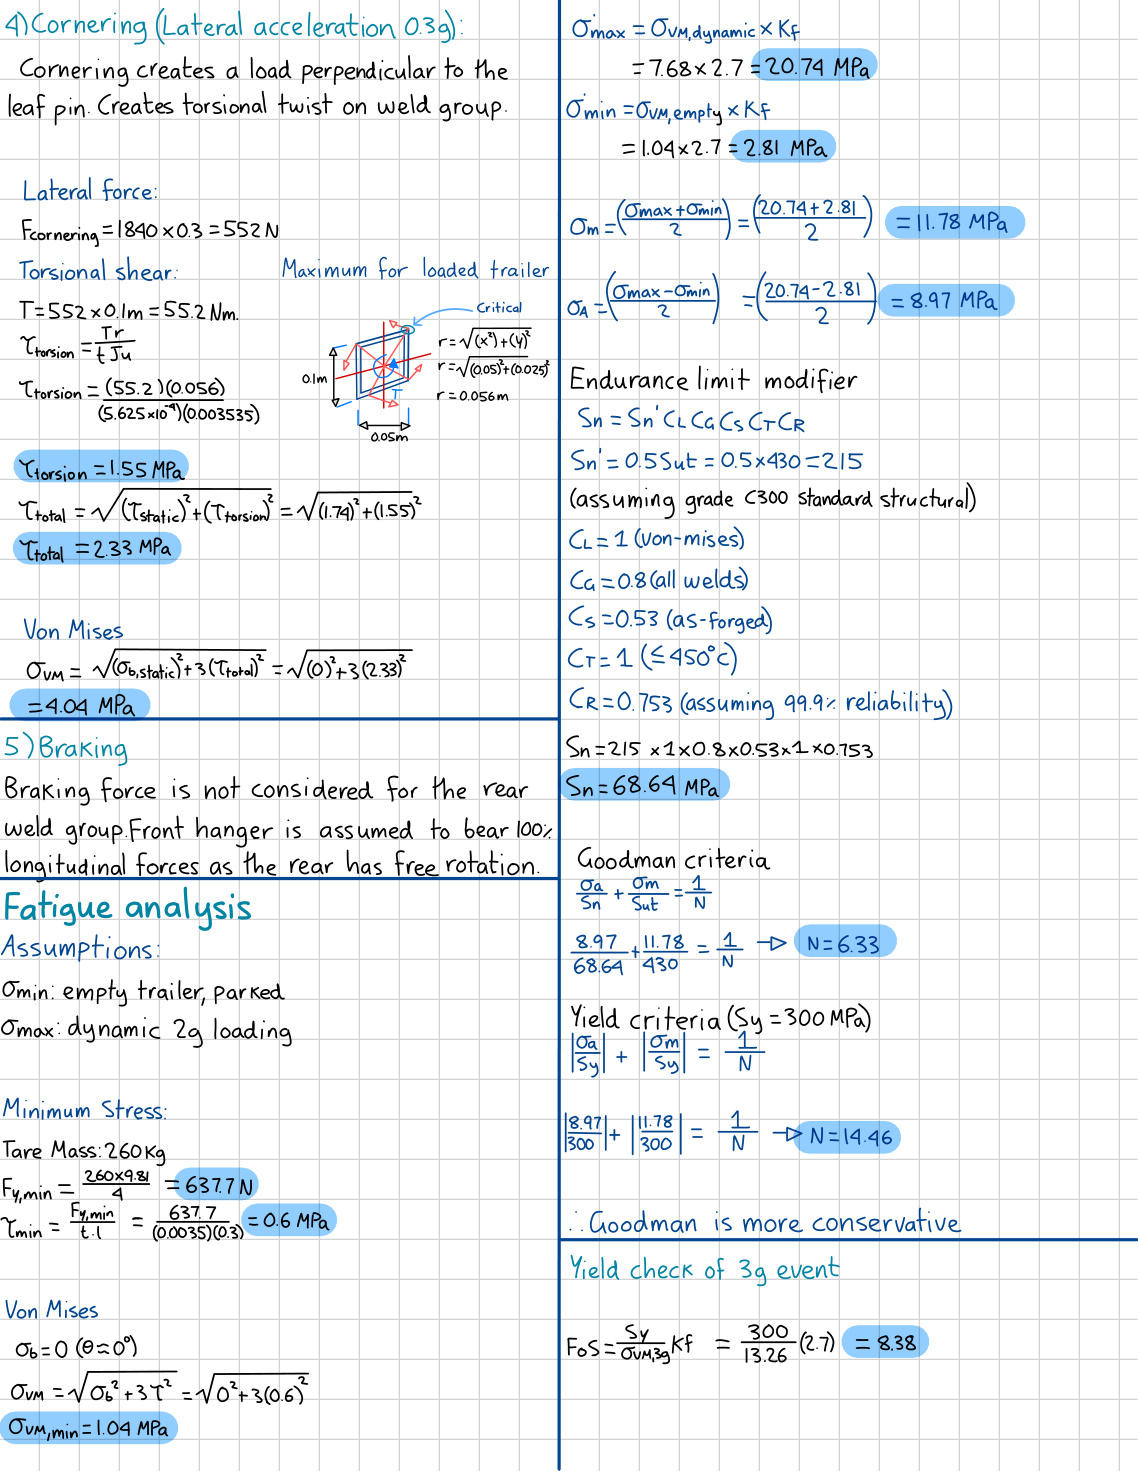 4) Cornering (Lateral acceleration 0.3g):
Cornering creates a load perpendicular to the
leaf pin. Creates torsional twist on weld group.
Lateral force:
Fcornering = 1840 × 0.3 = 552 N
Torsional shear:
Maximum for loaded trailer
T = 552 × 0.1m = 55.2 Nm.
τtorsion = Tr / t Ju
τtorsion = (55.2)(0.056) / (5.625×10⁻⁴)(0.003535)
Critical
r = √(x²)+(y)²
r = √(0.05)²+(0.025)²
r = 0.056m
0.1m
T
0.05m
τtorsion = 1.55 MPa
τtotal = √(τstatic)²+(τtorsion)² = √(1.74)²+(1.55)²
τtotal = 2.33 MPa
Von Mises
σVM = √(σb,static)²+3(τtotal)² = √(0)²+3(2.33)²
= 4.04 MPa
5) Braking
Braking force is not considered for the rear
weld group. Front hanger is assumed to bear 100%
longitudinal forces as the rear has free rotation.
Fatigue analysis
Assumptions:
σmin: empty trailer, parked
σmax: dynamic 2g loading
Minimum Stress:
Tare Mass: 260kg
Fy,min = 260×9.81 / 4 = 637.7 N
τmin = Fy,min / t.l = 637.7 / (0.0035)(0.3) = 0.6 MPa
Von Mises
σb = 0 (θ≈0°)
σVM = √σb²+3τ² = √0²+3(0.6)²
σVM,min = 1.04 MPa
σmax = σVM,dynamic × Kf
= 7.68 × 2.7 = 20.74 MPa
σmin = σVM,empty × Kf
= 1.04 × 2.7 = 2.81 MPa
σm = (σmax+σmin / 2) = (20.74+2.81 / 2) = 11.78 MPa
σA = (σmax−σmin / 2) = (20.74−2.81 / 2) = 8.97 MPa
Endurance limit modifier
Sn = Sn' CL CG CS CT CR
Sn' = 0.5 Sut = 0.5×430 = 215
(assuming grade C300 standard structural)
CL = 1 (von-mises)
CG = 0.8 (all welds)
CS = 0.53 (as-forged)
CT = 1 (≤450°C)
CR = 0.753 (assuming 99.9% reliability)
Sn = 215 ×1×0.8×0.53×1×0.753
Sn = 68.64 MPa
Goodman criteria
σa/Sn + σm/Sut = 1/N
8.97/68.64 + 11.78/430 = 1/N → N = 6.33
Yield criteria (Sy = 300 MPa)
|σa/Sy| + |σm/Sy| = 1/N
|8.97/300| + |11.78/300| = 1/N → N = 14.46
∴ Goodman is more conservative
Yield check of 3g event
FoS = Sy/σVM,3g Kf = 300/13.26 (2.7) = 8.38